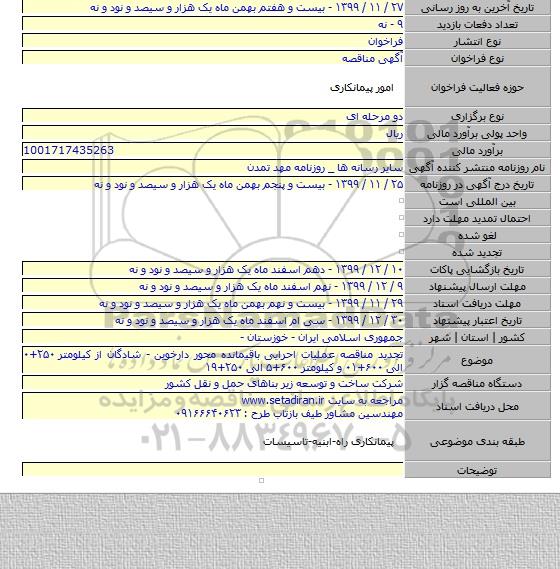 تاریخ آخرین به روز رسانی ۲۷ / ۱۱ / ۱۳۹۹ - بیست و هفتم بهمن ماه یک هزار و سیصد و نود و نه
تعداد دفعات بازدید ۹ - نه
نوع انتشار فراخوان
نوع فراخوان آگهی مناقصه
حوزه فعالیت فراخوان امور پیمانکاری
نوع برگزاری دو مرحله ای
واحد پولی برآورد مالی ریال
برآورد مالی 1001717435263
نام روزنامه منتشر کننده آگهی سایر رسانه ها _ روزنامه مهد تمدن
تاریخ درج آگهی در روزنامه ۲۵ / ۱۱ / ۱۳۹۹ - بیست و پنجم بهمن ماه یک هزار و سیصد و نود و نه
بین المللی است
احتمال تمدید مهلت دارد
لغو شده
تجدید شده
تاریخ بازگشایی پاکات ۱۰ / ۱۲ / ۱۳۹۹ - دهم اسفند ماه یک هزار و سیصد و نود و نه
مهلت ارسال پیشنهاد ۹ / ۱۲ / ۱۳۹۹ - نهم اسفند ماه یک هزار و سیصد و نود و نه
مهلت دریافت اسناد ۲۹ / ۱۱ / ۱۳۹۹ - بیست و نهم بهمن ماه یک هزار و سیصد و نود و نه
تاریخ اعتبار پیشنهاد ۳۰ / ۱۲ / ۱۳۹۹ - سی ام اسفند ماه یک هزار و سیصد و نود و نه
کشور | استان | شهر جمهوری اسلامی ایران - خوزستان -
موضوع تجدید مناقصه عملیات اجرایی باقیمانده محور دارخوین - شادگان از کیلومتر ۲۵۰+۰
الی ۶۰۰+۰۱ و کیلومتر ۶۰۰+۵ الی ۲۵۰+۱۹
دستگاه مناقصه گزار شرکت ساخت و توسعه زیر بناهای حمل و نقل کشور
محل دریافت اسناد مراجعه به سایت www.setadiran.ir
مهندسین مشاور طیف بازتاب طرح : ۰۹۱۶۶۶۴۰۶۲۳
طبقه بندی موضوعی پیمانکاری راه-ابنیه-تاسیسات
توضیحات
پایگاه اطلاع رسانی مناقصه و مزایده
۰۲۱-۸۸۳۴۹۶۷۰-۵